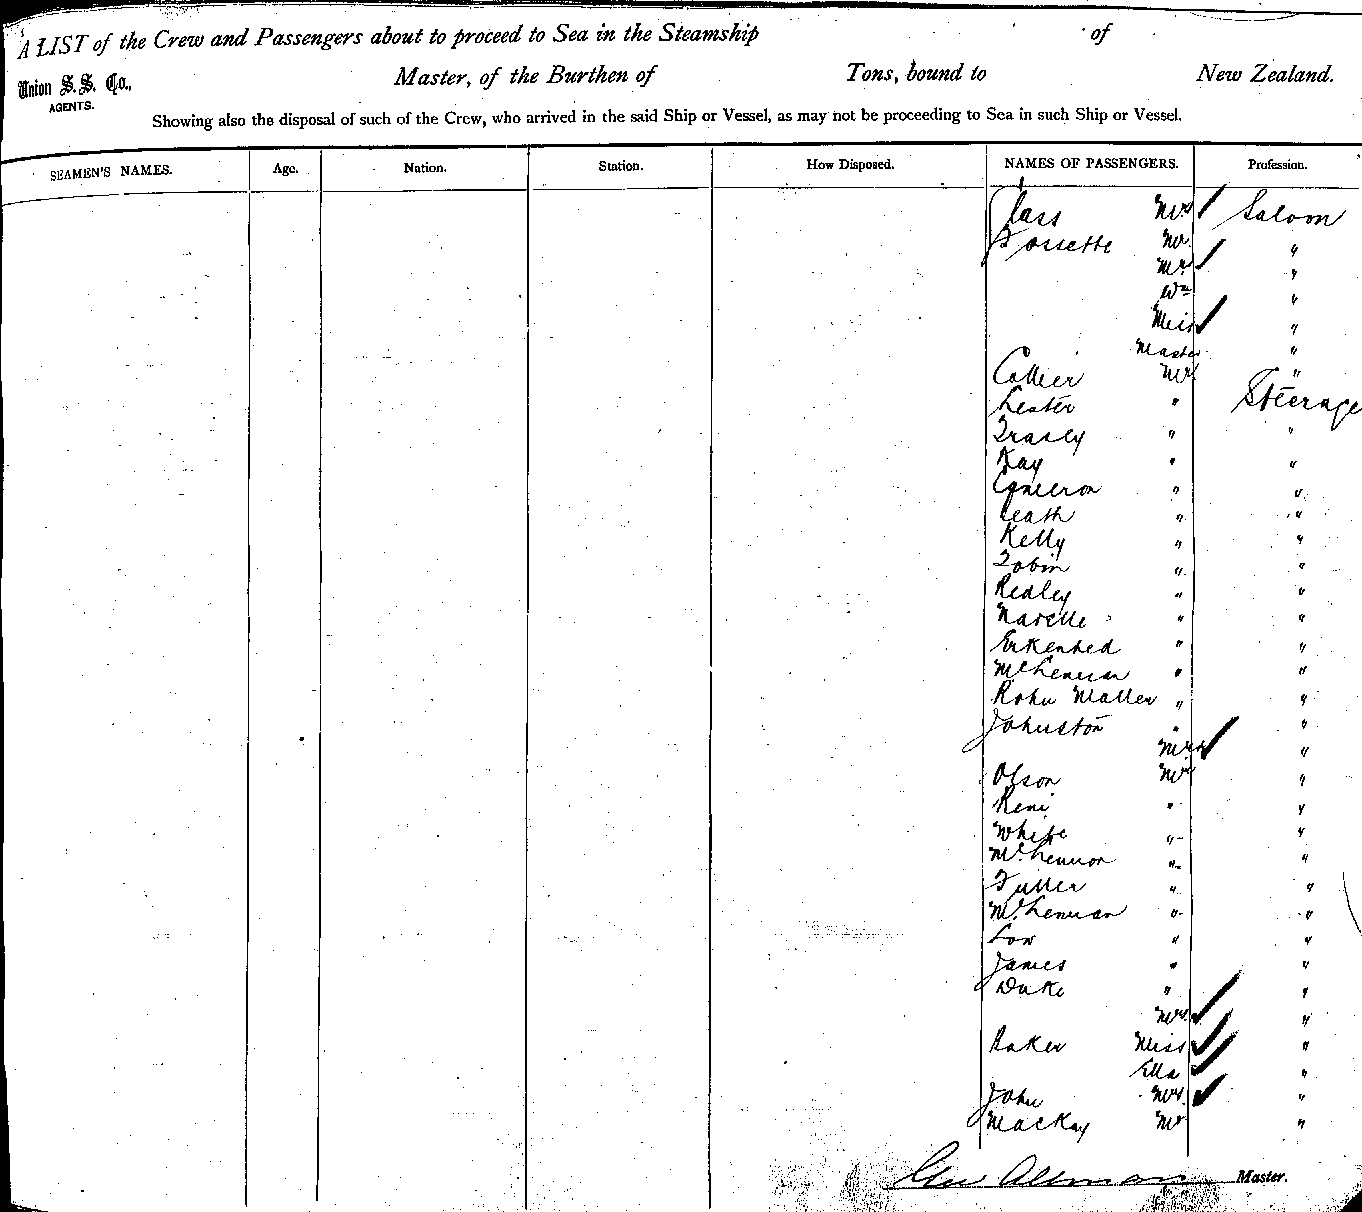 A LIST of the Crew and Passengers about to proceed to Sea in the Steamship of
Union S.S. Co., Master, of the Burthen of Tons, bound to New Zealand.
AGENTS.
Showing also the disposal of such of the Crew, who arrived in the said Ship or Vessel, as may not be proceeding to Sea in such Ship or Vessel.
SEAMEN'S NAMES. Age. Nation. Station. How Disposed. NAMES OF PASSENGERS. Profession.
Class Mrs Saloon
Fossette Mr "
Mrs "
Wm "
Miss "
Master "
Collier Mr "
Lester " Steerage
Frasey " "
Kay " "
Cameron " "
Leath " "
Kelly " "
Tobin " "
Redley " "
Navelle " "
Erkenhed " "
McLennan " "
Rohu Maller " "
Johnston " "
Mrs "
Olson Mr "
Reni " "
White " "
McLennon " "
Fuller " "
McLennan " "
Low " "
James " "
Duke " "
Mrs "
Baker Miss "
Ella "
John Mrs "
MacKay Mr "
Geo Allman Master.